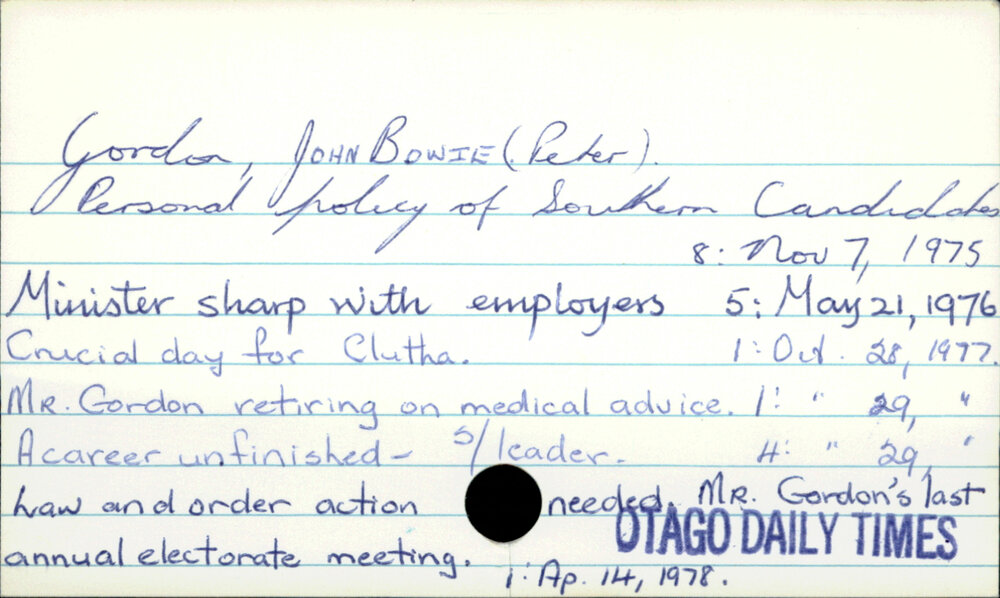 Gordon, JOHN BOWIE (Peter).
Personal policy of Southern Candidates
8: Nov 7, 1975
Minister sharp with employers 5: May 21, 1976
Crucial day for Clutha. 1: Oct. 28, 1977.
MR. Gordon retiring on medical advice. 1: " 29, "
A career unfinished - s/leader. 4: " 29, "
Law and order action needed. MR. Gordon's last
OTAGO DAILY TIMES
annual electorate meeting. 1: Ap. 14, 1978.